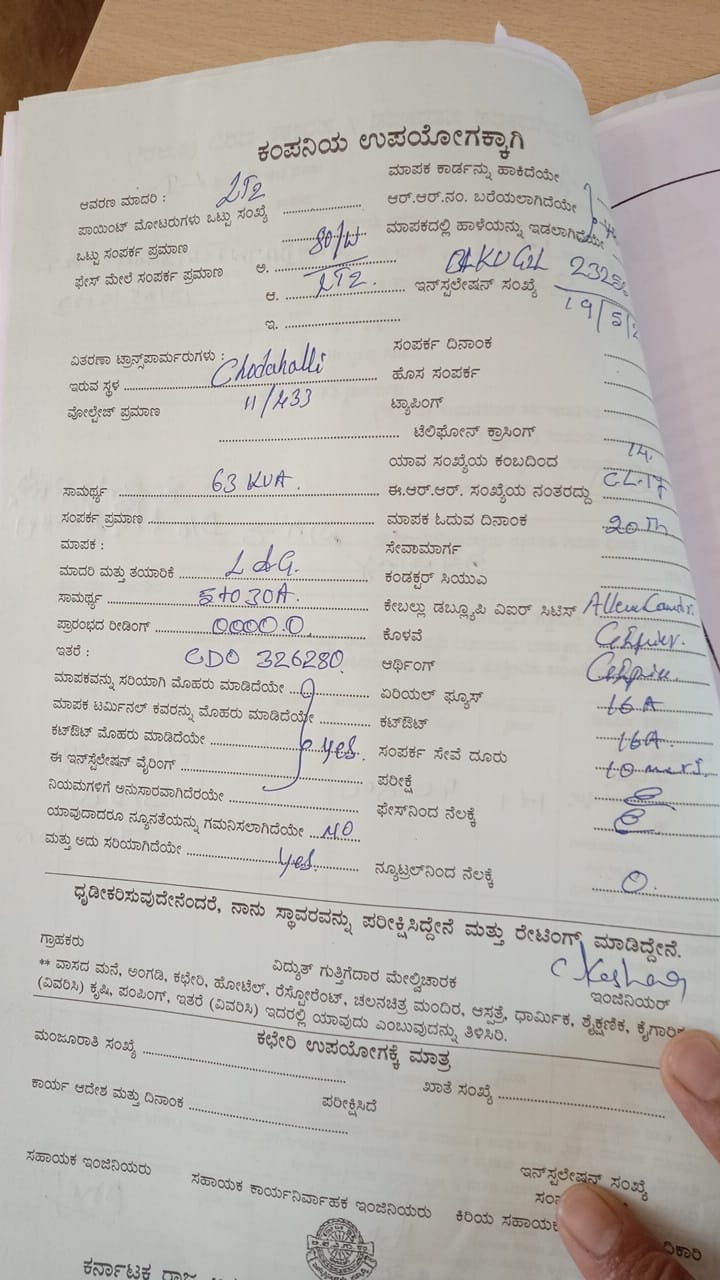 ಕಂಪನಿಯ ಉಪಯೋಗಕ್ಕಾಗಿ
ಆವರಣ ಮಾದರಿ : LT2 ಮಾಪಕ ಕಾರ್ಡನ್ನು ಹಾಕಿದೆಯೇ
ಪಾಯಿಂಟ್ ಮೋಟರುಗಳು ಒಟ್ಟು ಸಂಖ್ಯೆ ಆರ್.ಆರ್.ನಂ. ಬರೆಯಲಾಗಿದೆಯೇ
ಒಟ್ಟು ಸಂಪರ್ಕ ಪ್ರಮಾಣ 80/W ಮಾಪಕದಲ್ಲಿ ಹಾಳೆಯನ್ನು ಇಡಲಾಗಿದೆಯೇ
ಫೇಸ್ ಮೇಲೆ ಸಂಪರ್ಕ ಪ್ರಮಾಣ ಅ.
ಆ. LT2. ಇನ್‌ಸ್ಪಲೇಷನ್ ಸಂಖ್ಯೆ
ಇ. 19/5/
ವಿತರಣಾ ಟ್ರಾನ್ಸ್‌ಪಾರ್ಮರುಗಳು : ಸಂಪರ್ಕ ದಿನಾಂಕ
ಇರುವ ಸ್ಥಳ Chodahalli ಹೊಸ ಸಂಪರ್ಕ
ವೋಲ್ಟೇಜ್ ಪ್ರಮಾಣ 11/433 ಟ್ಯಾಪಿಂಗ್
ಟೆಲಿಫೋನ್ ಕ್ರಾಸಿಂಗ್
ಯಾವ ಸಂಖ್ಯೆಯ ಕಂಬದಿಂದ 14.
ಸಾಮರ್ಥ್ಯ 63 KVA. ಈ.ಆರ್.ಆರ್. ಸಂಖ್ಯೆಯ ನಂತರದ್ದು CL-17
ಸಂಪರ್ಕ ಪ್ರಮಾಣ ಮಾಪಕ ಓದುವ ದಿನಾಂಕ 20Th
ಮಾಪಕ : ಸೇವಾಮಾರ್ಗ
ಮಾದರಿ ಮತ್ತು ತಯಾರಿಕೆ L&G. ಕಂಡಕ್ಟರ್ ಸಿಯುಎ
ಸಾಮರ್ಥ್ಯ 5to30A. ಕೇಬಲ್ಲು ಡಬ್ಲ್ಯೂಪಿ ವಿಐರ್ ಸಿಟಿಸ್
ಪ್ರಾರಂಭದ ರೀಡಿಂಗ್ 0000.0. ಕೊಳವೆ
ಇತರೆ : CDO 326280. ಆರ್ಥಿಂಗ್
ಮಾಪಕವನ್ನು ಸರಿಯಾಗಿ ಮೊಹರು ಮಾಡಿದೆಯೇ ಏರಿಯಲ್ ಫ್ಯೂಸ್ 16A
ಮಾಪಕ ಟರ್ಮಿನಲ್ ಕವರನ್ನು ಮೊಹರು ಮಾಡಿದೆಯೇ ಕಟ್‌ಔಟ್ 16A.
ಕಟ್‌ಔಟ್ ಮೊಹರು ಮಾಡಿದೆಯೇ yes. ಸಂಪರ್ಕ ಸೇವೆ ದೂರು 10 mers.
ಈ ಇನ್‌ಸ್ಟೆಲೇಷನ್ ವೈರಿಂಗ್ ಪರೀಕ್ಷೆ
ನಿಯಮಗಳಿಗೆ ಅನುಸಾರವಾಗಿದೆರೆಯೇ ಫೇಸ್‌ನಿಂದ ನೆಲಕ್ಕೆ
ಯಾವುದಾದರೂ ನ್ಯೂನತೆಯನ್ನು ಗಮನಿಸಲಾಗಿದೆಯೇ NO
ಮತ್ತು ಅದು ಸರಿಯಾಗಿದೆಯೇ yes. ನ್ಯೂಟ್ರಲ್‌ನಿಂದ ನೆಲಕ್ಕೆ 0.
ಧೃಡೀಕರಿಸುವುದೇನೆಂದರೆ, ನಾನು ಸ್ಥಾವರವನ್ನು ಪರೀಕ್ಷಿಸಿದ್ದೇನೆ ಮತ್ತು ರೇಟಿಂಗ್ ಮಾಡಿದ್ದೇನೆ.
ಗ್ರಾಹಕರು ವಿದ್ಯುತ್ ಗುತ್ತಿಗೆದಾರ ಮೇಲ್ವಿಚಾರಕ ಇಂಜಿನಿಯರ್
** ವಾಸದ ಮನೆ, ಅಂಗಡಿ, ಕಛೇರಿ, ಹೋಟೆಲ್, ರೆಸ್ಟೋರೆಂಟ್, ಚಲನಚಿತ್ರ ಮಂದಿರ, ಆಸ್ಪತ್ರೆ, ಧಾರ್ಮಿಕ, ಶೈಕ್ಷಣಿಕ,
(ವಿವರಿಸಿ) ಕೃಷಿ, ಪಂಪಿಂಗ್, ಇತರೆ (ವಿವರಿಸಿ) ಇದರಲ್ಲಿ ಯಾವುದು ಎಂಬುವುದನ್ನು ತಿಳಿಸಿರಿ.
ಕಛೇರಿ ಉಪಯೋಗಕ್ಕೆ ಮಾತ್ರ
ಮಂಜೂರಾತಿ ಸಂಖ್ಯೆ ಖಾತೆ ಸಂಖ್ಯೆ
ಕಾರ್ಯ ಆದೇಶ ಮತ್ತು ದಿನಾಂಕ ಪರೀಕ್ಷಿಸಿದೆ
ಇನ್‌ಸ್ಪಲೇಷನ್ ಸಂಖ್ಯೆ
ಸಹಾಯಕ ಇಂಜಿನಿಯರು ಸಹಾಯಕ ಕಾರ್ಯನಿರ್ವಾಹಕ ಇಂಜಿನಿಯರು ಕಿರಿಯ
ಕರ್ನಾಟಕ